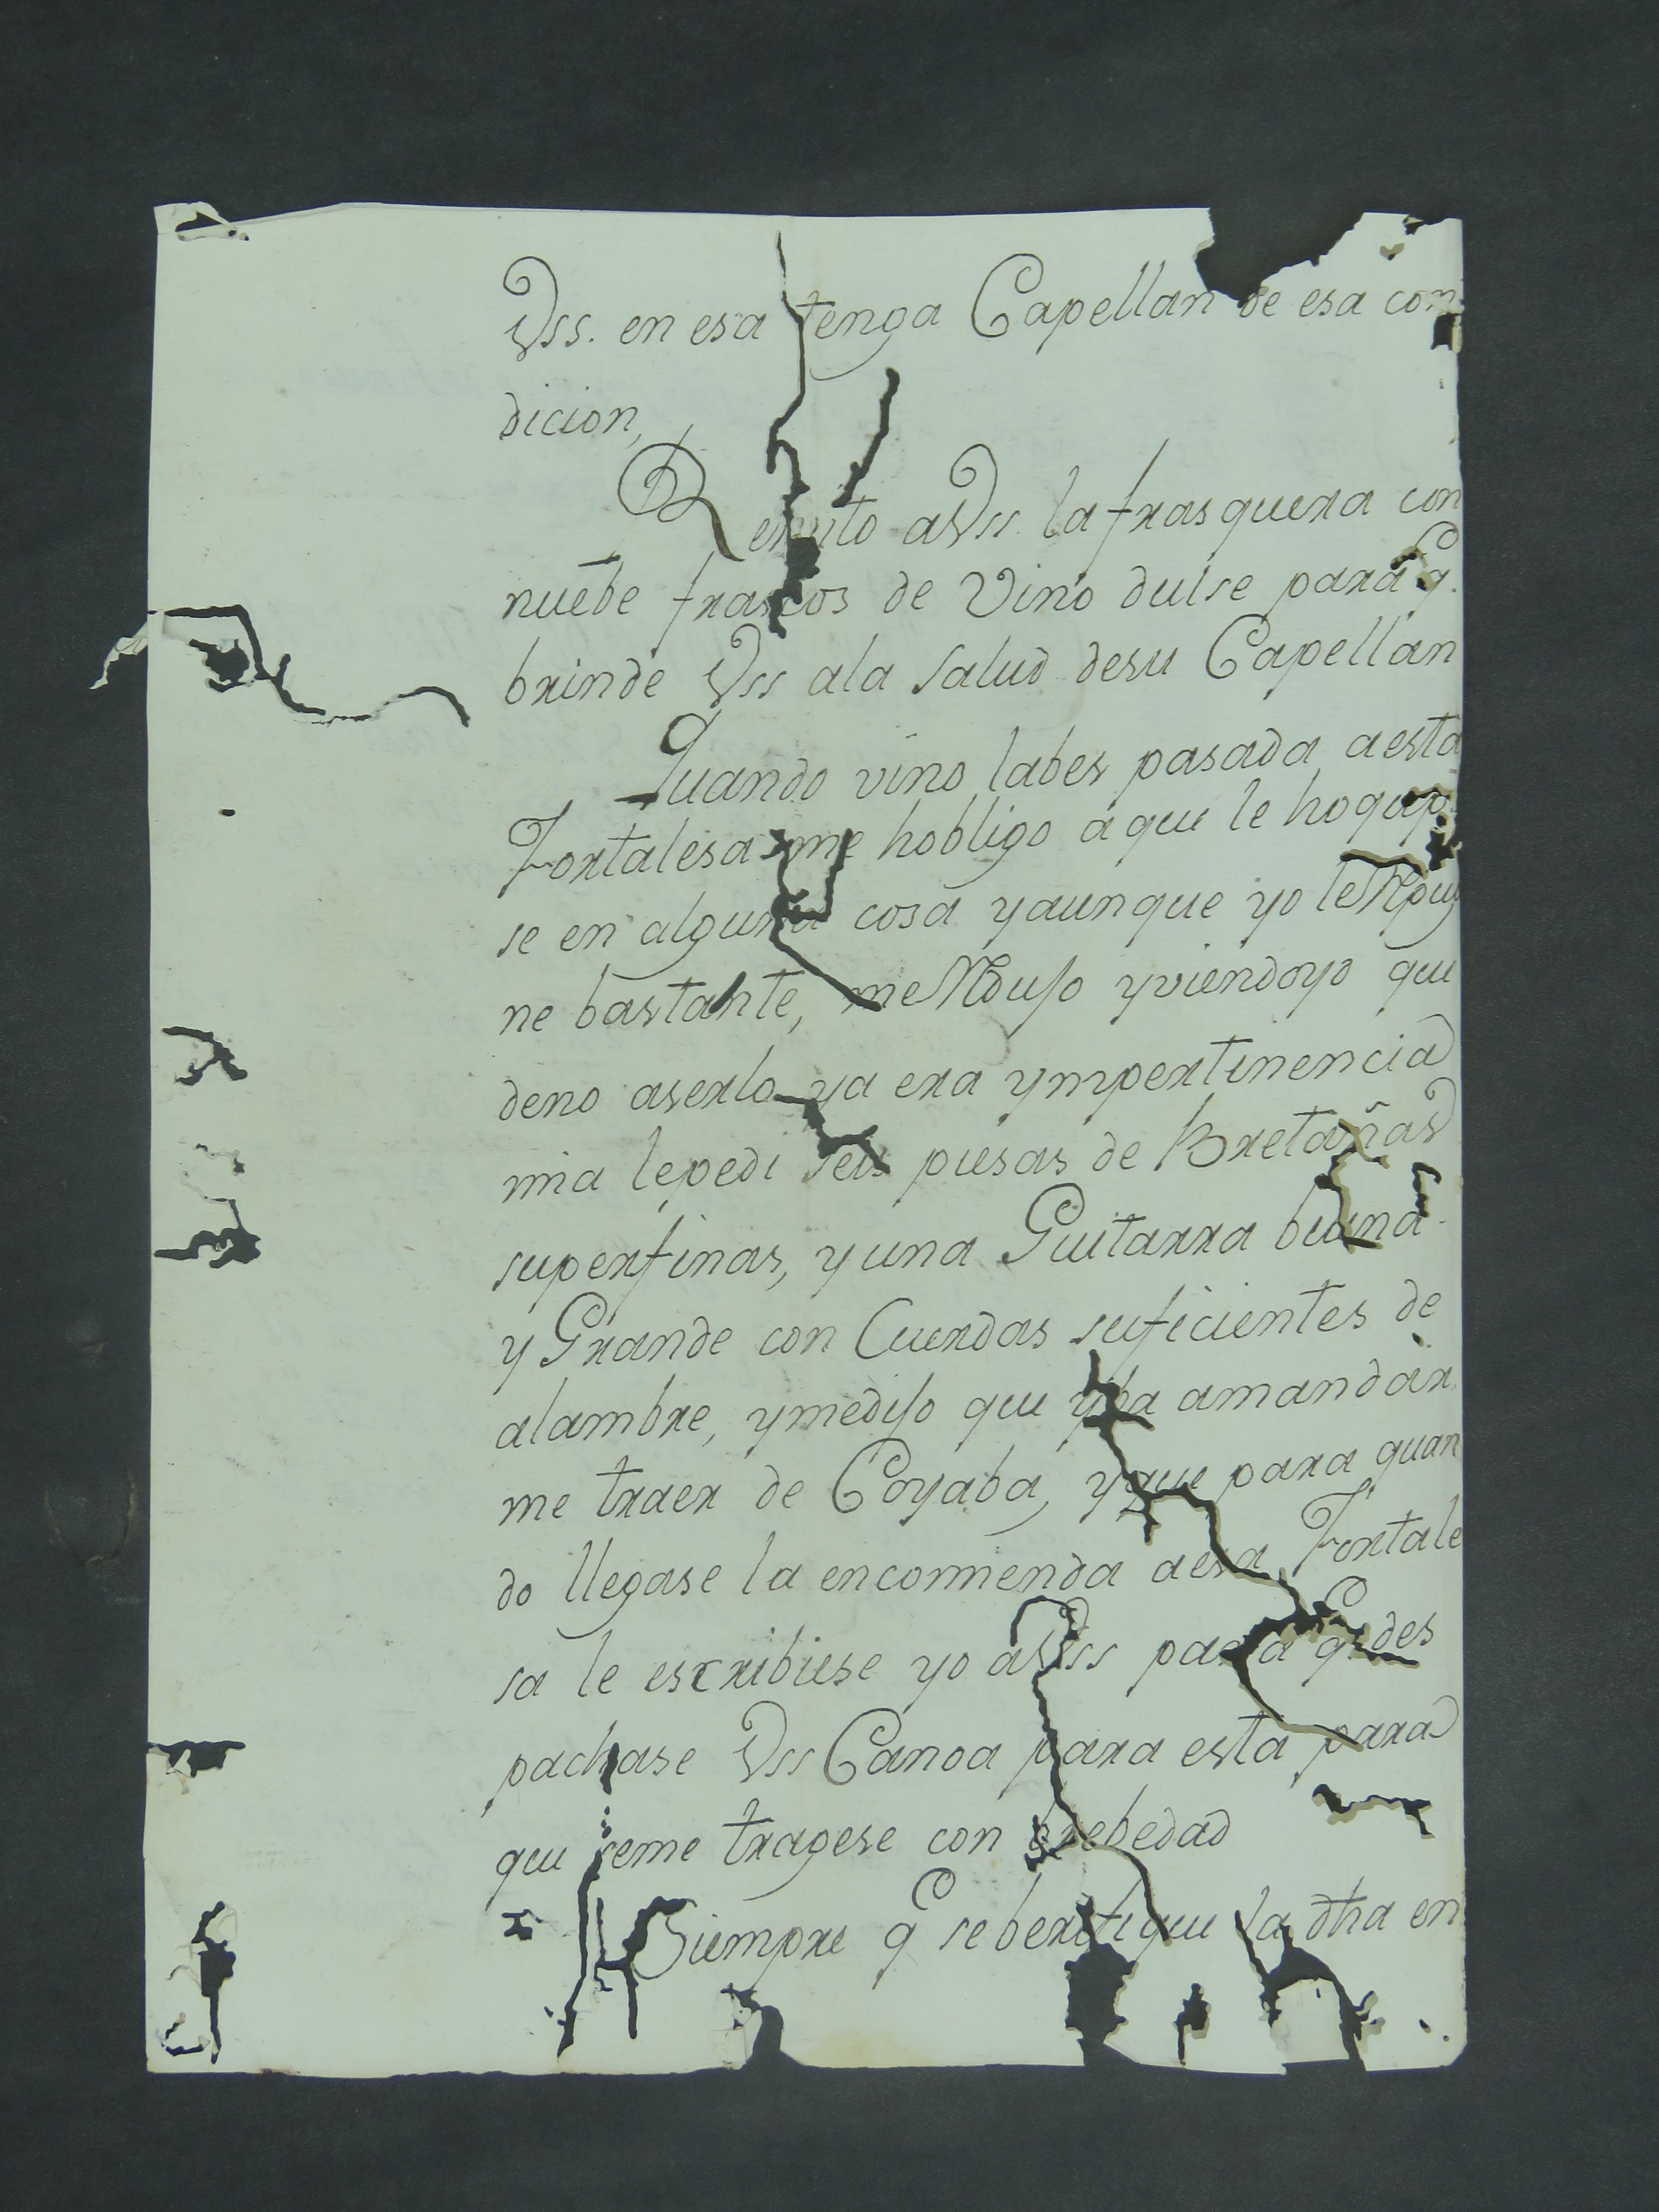 Vss. en esa tenga Capellan de esa con
dicion,
Remito aVss. la frasquera con
nuebe frascos de Vino dulse para q.
brinde Vss ala salud desu Capellan
Quando vino labes pasada aesta
Fortalesa me hobligo a que le hoqup
se en alguna cosa yaunque yo leRpug
ne bastante, meRduso yviendoyo que
deno aserlo ya era ympertinencia
mia lepedi seis piesas de Bretañas
superfinas, y una Guitarra buena
y Grande con Cuerdas suficientes de
alambre, ymediso que yba amandar
me traer de Coyaba, yque para quan
do llegase la encomienda aesa Fortale
sa le escribiese yo aVss para q. des
pachase Vss Canoa para esta para
que seme tragese con brebedad
Siempre q se berifique la dha en